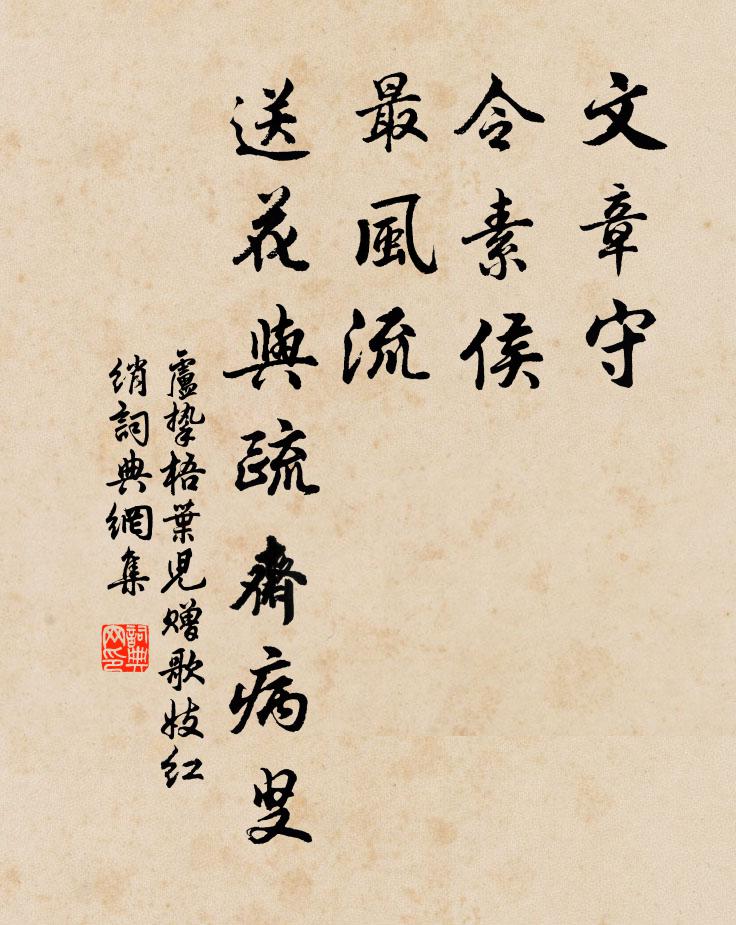 文章守
令素侯
最風流
送花與疏齋病叟
盧摯梧葉兒贈歌妓紅
綃詞典網集
詞典網印